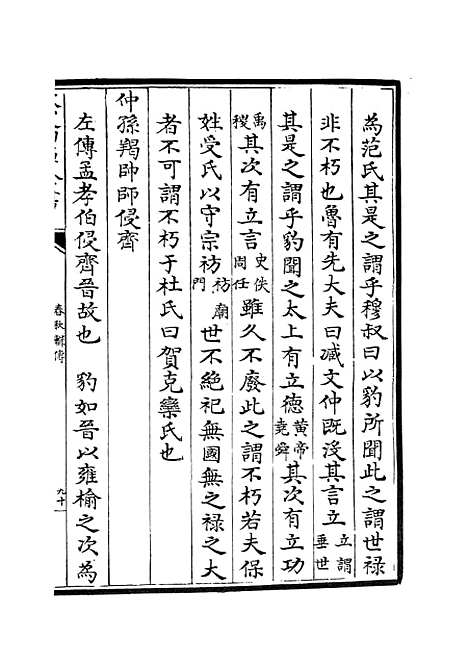 為范氏其是之謂乎穆叔曰以豹所聞此之謂世禄
非不朽也魯有先大夫曰臧文仲既没其言立立謂垂世
其是之謂乎豹聞之太上有立德黄帝堯舜其次有立功
禹稷其次有立言史佚周任雖久不廢此之謂不朽若夫保
姓受氏以守宗祊祊廟門世不絶祀無國無之禄之大
者不可謂不朽于杜氏曰賀克欒氏也
仲孫羯帥師侵齊
左傳孟孝伯侵齊晉故也　豹如晉以雍榆之次為
春秋輯傳
九十